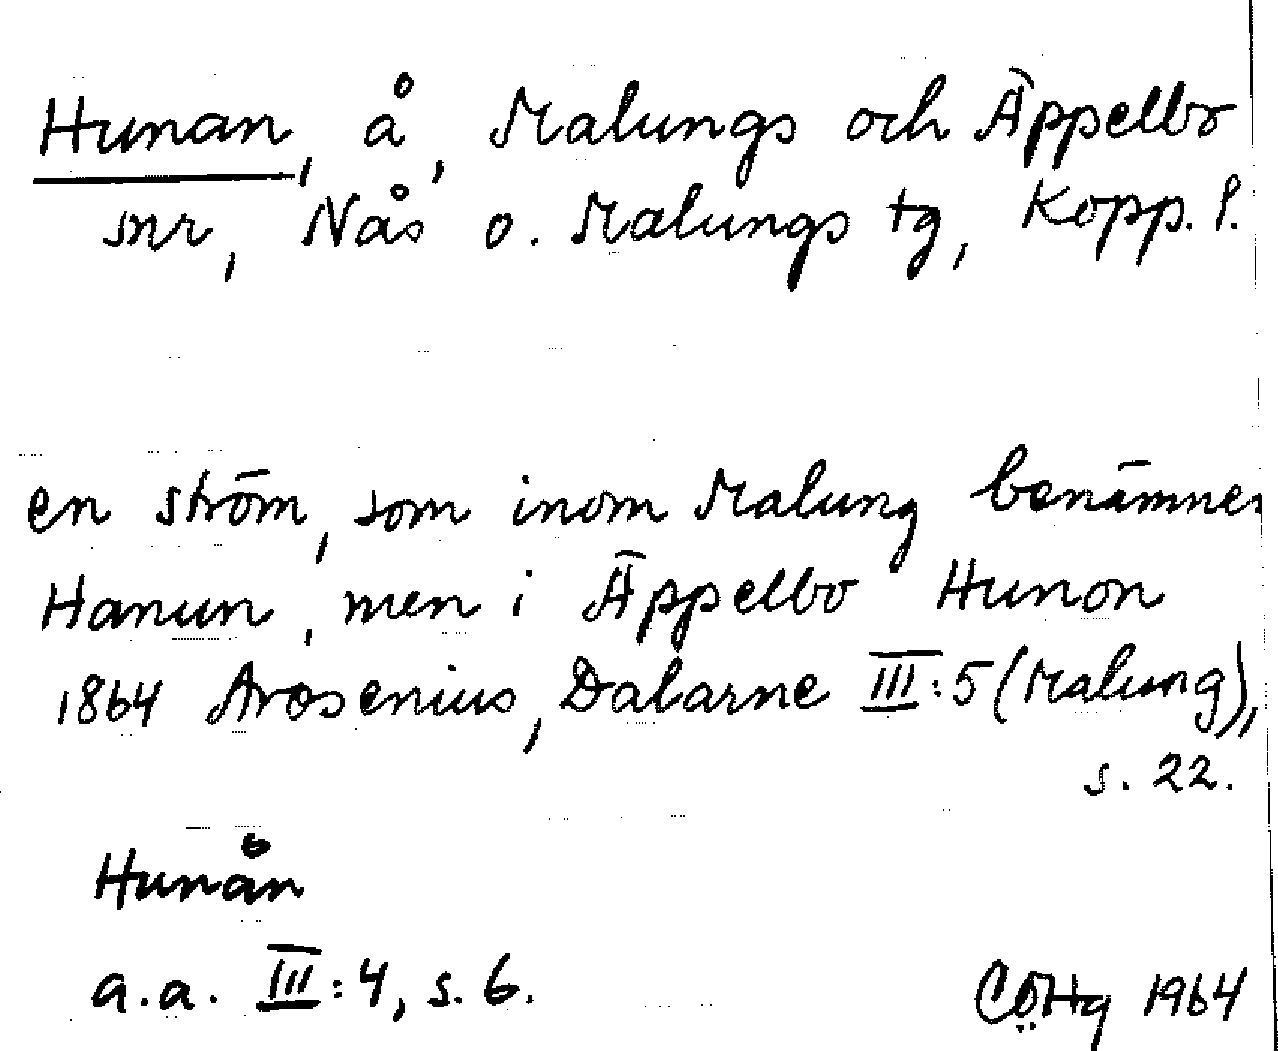 Hunan, å, Malungs och Äppelbo
snr, Nås o. Malungs tg, Kopp. l.
en ström, som inom Malung benämnes
Hanun, men i Äppelbo Hunon
1864 Arosenius, Dalarne III:5 (Malung),
s. 22.
Hunån
a.a. III:4, s. 6.
1964